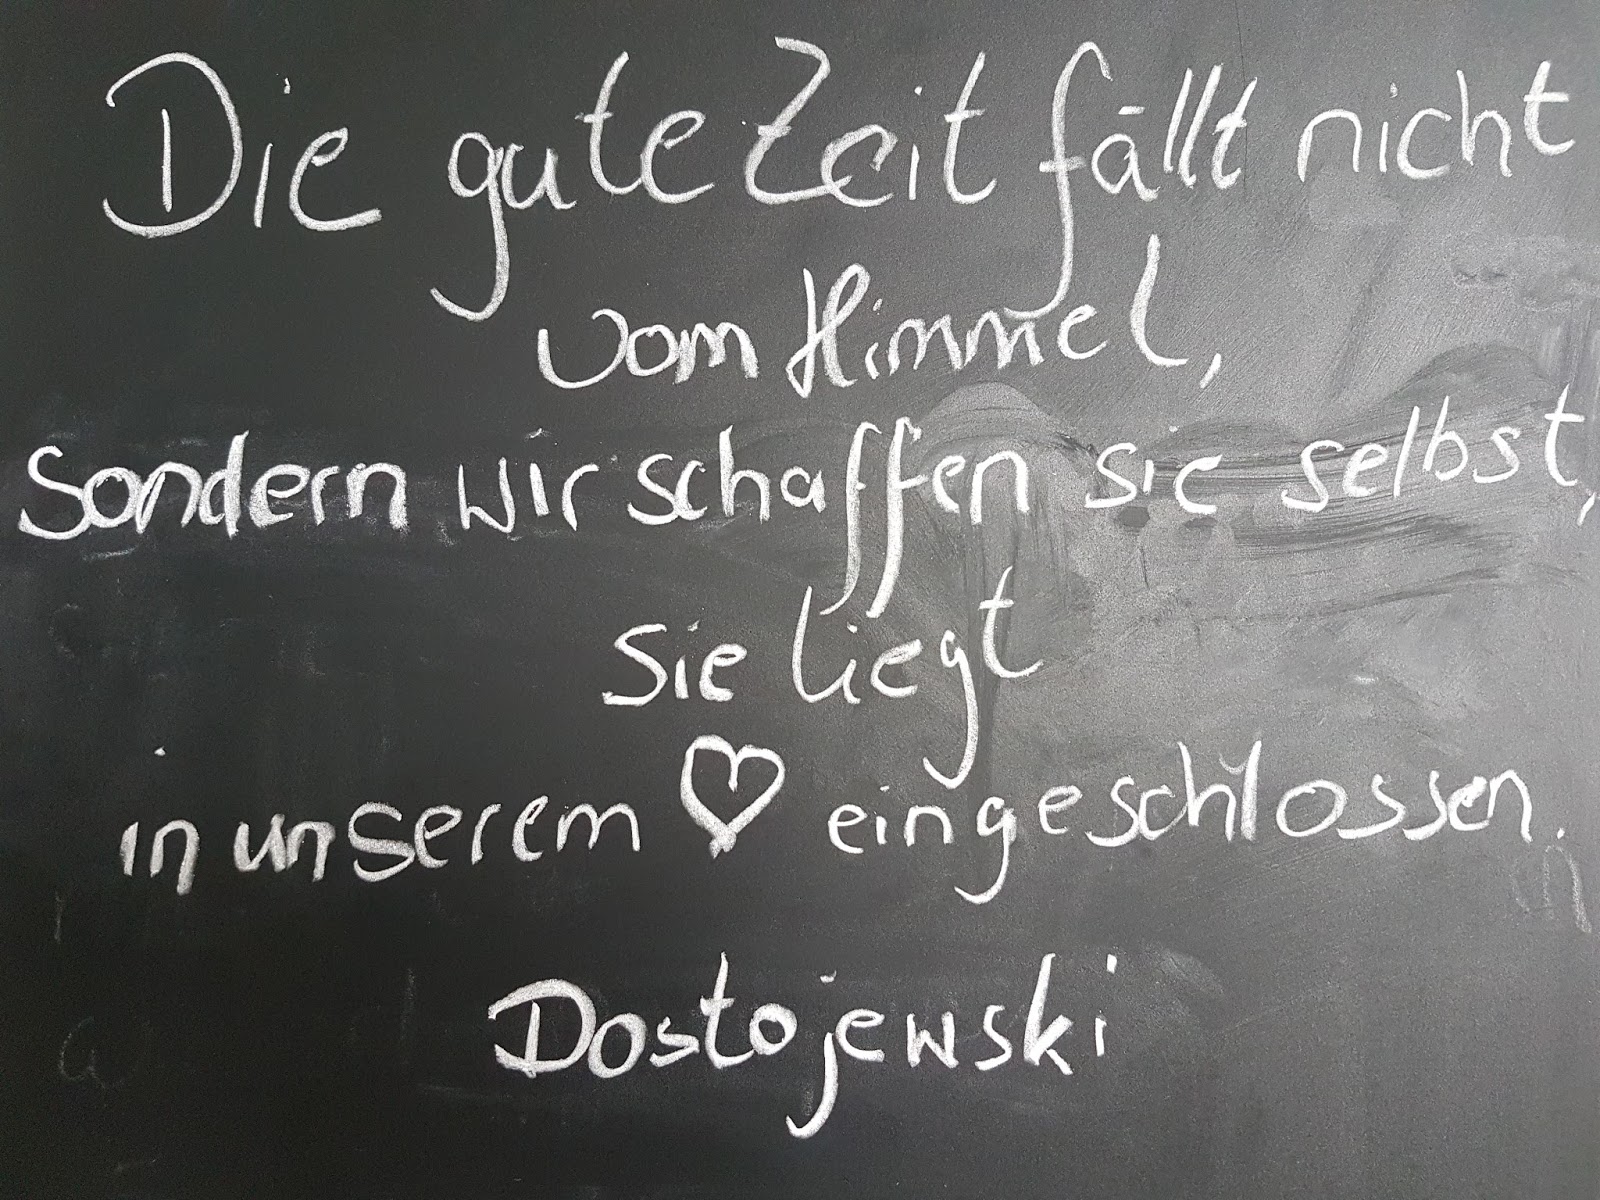 Die gute Zeit fällt nicht
vom Himmel,
Sondern wir schaffen sie selbst,
Sie liegt
in unserem ♡ eingeschlossen.
Dostojewski